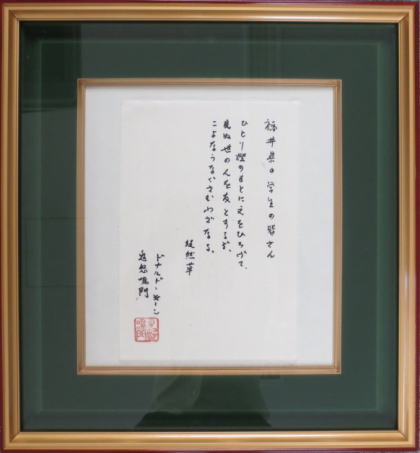 福井県の学生の皆さん
ひとり燈のもとに文をひろげて、
見ぬ世の人を友とするぞ、
こよなうなぐさむわざなる。
徒然草
ドナルド・キーン
鬼怒鳴門